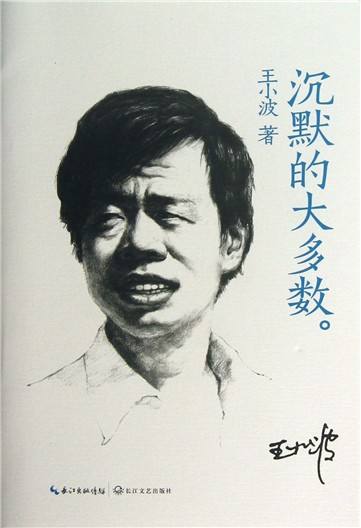 沉默的大多数。
王小波 著
王小波
长江出版传媒
长江文艺出版社